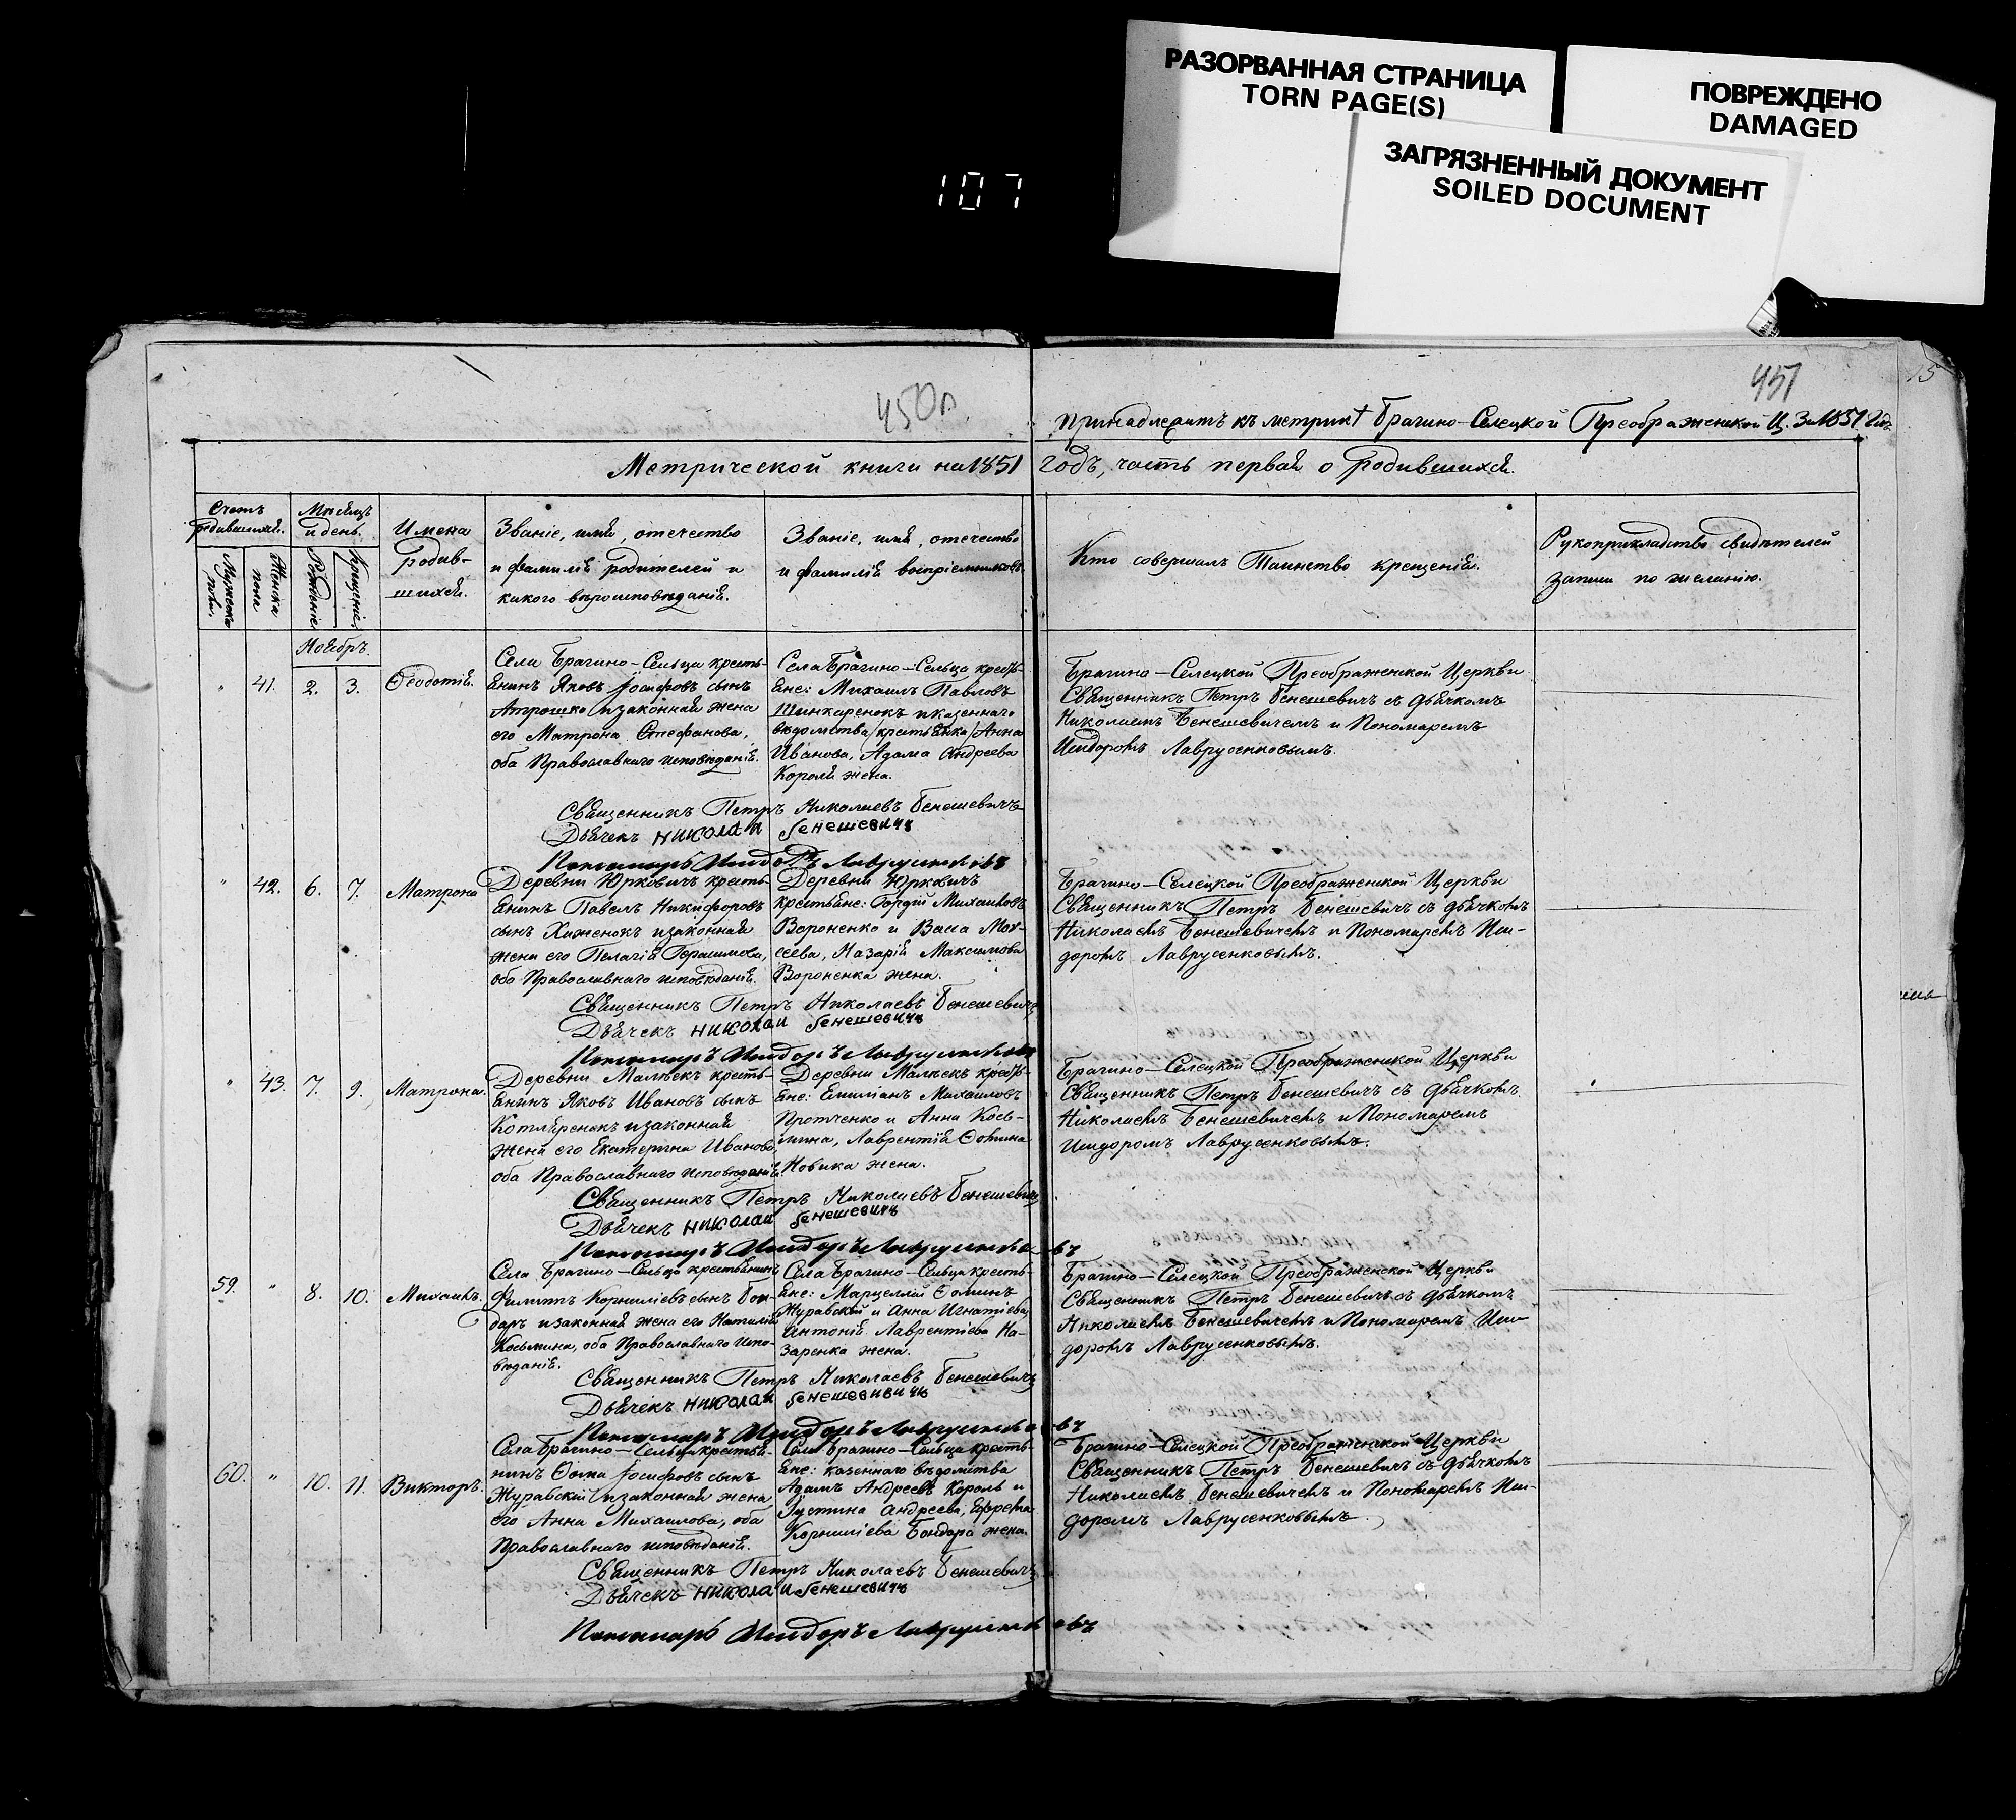 РАЗОРВАННАЯ СТРАНИЦА
TORN PAGE(S)
ПОВРЕЖДЕНО
DAMAGED
ЗАГРЯЗНЕННЫЙ ДОКУМЕНТ
SOILED DOCUMENT
107
450
451
15
Принадлежитъ къ метрикѣ Брагино-Селецкой Преображенской Ц. За 1851 Годъ
Метрической книги на 1851 годъ, часть первая о родившихся.
Счетъ родившихся.
Мужеска пола.
Женска пола
Мѣсяцъ и день.
Рожденіе
Крещеніе
Имена
родив-
шихся.
Званіе, имя, отечество
и фамилія родителей и
какого вѣроисповѣданія.
Званіе, имя, отечество
и фамилія воспріемниковъ.
Кто совершалъ Таинство крещенія.
Рукоприкладство свидѣтелей
записи по желанію.
Ноябрь.
" 41. 2. 3. Ѳеодотія.
Села Брагино-Сельца кресть-
янинъ Яковъ Іосифовъ сынъ
Атрошко и законная жена
его Матрона Стефанова,
оба Православнаго исповѣданія.
Села Брагино-Сельца кресть-
яне: Михаилъ Павловъ
Шинкаренокъ и казеннаго
вѣдомства крестьянка Анна
Иванова, Адама Андреева
Короля жена.
Брагино-Селецкой Преображенской Церкви
Священникъ Петръ Бенешевичъ съ дьячкомъ
Николаемъ Бенешевичемъ и Пономаремъ
Исидоромъ Лаврусенковымъ.
Священникъ Петръ Николаевъ Бенешевичъ
Дьячекъ Николаи Бенешевичъ
Пономарь Исидоръ Лаврусенковъ
" 42. 6. 7. Матрона
Деревни Юрковичъ кресть-
янинъ Павелъ Никифоровъ
сынъ Хиженокъ и законная
жена его Пелагія Герасимова,
оба Православнаго исповѣданія.
Деревни Юрковичъ
крестьяне: Гордій Михайловъ
Вороненко и Васса Мои-
сеева, Назарія Максимова
Вороненка жена.
Брагино-Селецкой Преображенской Церкви
Священникъ Петръ Бенешевичъ съ дьячкомъ
Николаемъ Бенешевичемъ и Пономаремъ Иси-
доромъ Лаврусенковымъ.
Священникъ Петръ Николаевъ Бенешевичъ
Дьячекъ Николаи Бенешевичъ
Пономарь Исидоръ Лаврусенковъ
" 43. 7. 9. Матрона.
Деревни Малѣекъ кресть-
янинъ Яковъ Ивановъ сынъ
Котляренокъ и законная
жена его Екатерина Иванова,
оба Православнаго исповѣданія.
Деревни Малѣекъ кресть-
яне: Емиліанъ Михайловъ
Протченко и Анна Кось-
мина, Лаврентія Ѳомина
Новика жена.
Брагино-Селецкой Преображенской Церкви
Священникъ Петръ Бенешевичъ съ дьячкомъ
Николаемъ Бенешевичемъ и Пономаремъ
Исидоромъ Лаврусенковымъ.
Священникъ Петръ Николаевъ Бенешевичъ
Дьячекъ Николаи Бенешевичъ
Пономарь Исидоръ Лаврусенковъ
59. " 8. 10. Михаилъ.
Села Брагино-Сельца крестьянинъ
Филиппъ Корниліевъ сынъ Бон-
даръ и законная жена его Наталія
Косьмина, оба Православнаго испо-
вѣданія.
Села Брагино-Сельца кресть-
яне: Марцеллій Ѳоминъ
Журавскій и Анна Игнатіева,
Антонія Лаврентіева На-
заренка жена.
Брагино-Селецкой Преображенской Церкви
Священникъ Петръ Бенешевичъ съ дьячкомъ
Николаемъ Бенешевичемъ и Пономаремъ Иси-
доромъ Лаврусенковымъ.
Священникъ Петръ Николаевъ Бенешевичъ
Дьячекъ Николаи Бенешевивичъ
Пономарь Исидоръ Лаврусенковъ
60. " 10. 11. Викторъ.
Села Брагино-Сельца крестья-
нинъ Ѳома Іосифовъ сынъ
Журавскій и законная жена
его Анна Михаилова, оба
Православнаго исповѣданія.
Села Брагино-Сельца кресть-
яне: казеннаго вѣдомства
Адамъ Андреевъ Король и
Іустина Андреева, Ефрема
Корниліева Бондара жена.
Брагино-Селецкой Преображенской Церкви
Священникъ Петръ Бенешевичъ съ дьячкомъ
Николаемъ Бенешевичемъ и Пономаремъ Иси-
доромъ Лаврусенковымъ.
Священникъ Петръ Николаевъ Бенешевичъ
Дьячекъ Николаи Бенешевичъ
Пономарь Исидоръ Лаврусенковъ